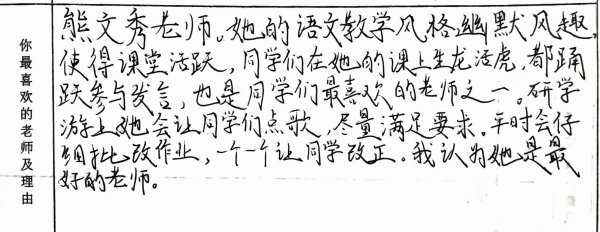 你最喜欢的老师及理由
熊文秀老师。她的语文教学风格幽默风趣,
使得课堂活跃,同学们在她的课上生龙活虎,都踊
跃参与发言,也是同学们最喜欢的老师之一。研学
游上她会让同学们点歌,尽量满足要求。平时会仔
细批改作业,一个一个让同学改正。我认为她是最
好的老师。